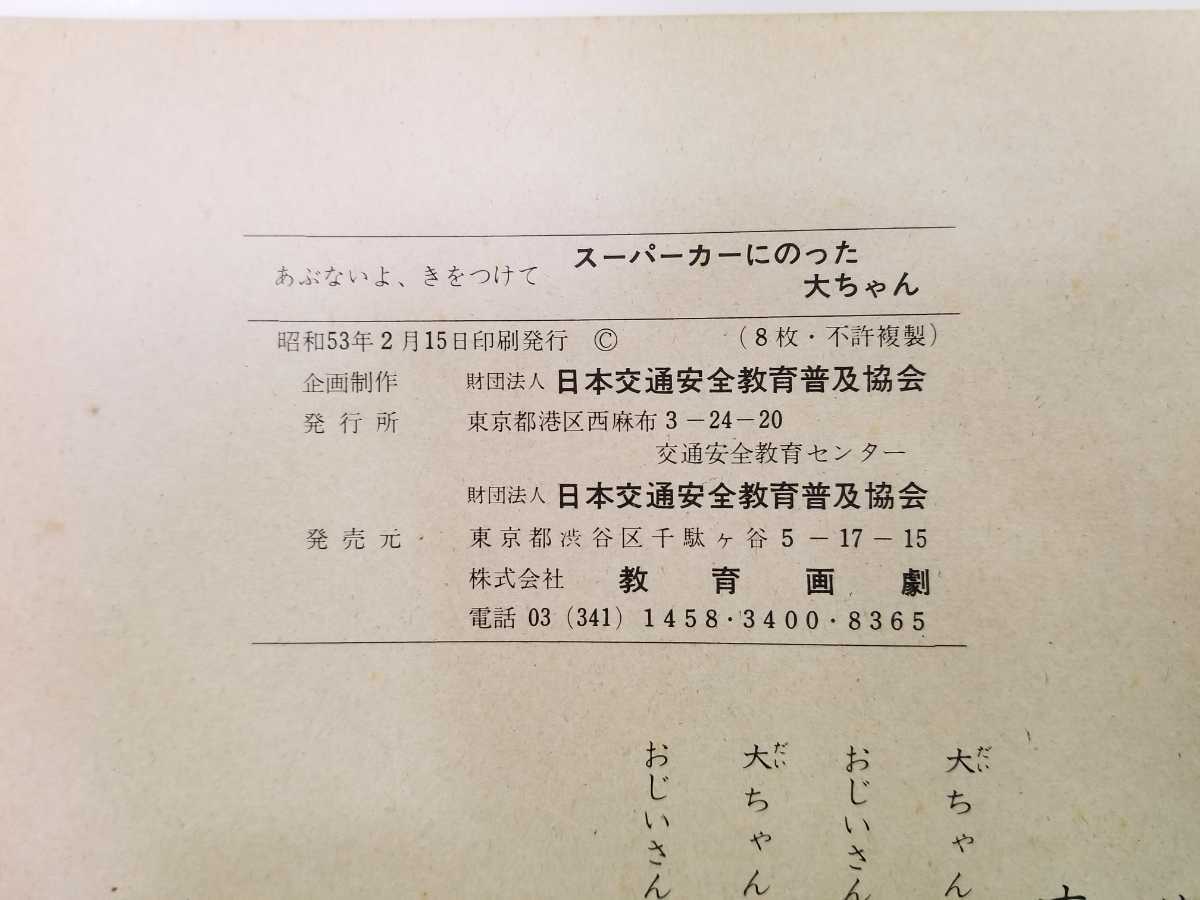 あぶないよ、きをつけて スーパーカーにのった
大ちゃん
昭和53年2月15日印刷発行 Ⓒ （8枚・不許複製）
企画制作 財団法人 日本交通安全教育普及協会
発行所 東京都港区西麻布3－24－20
交通安全教育センター
財団法人 日本交通安全教育普及協会
発売元 東京都渋谷区千駄ヶ谷5－17－15
株式会社 教育画劇
電話 03（341）1458・3400・8365
大ちゃん
だい
おじいさん
大ちゃん
だい
おじいさん